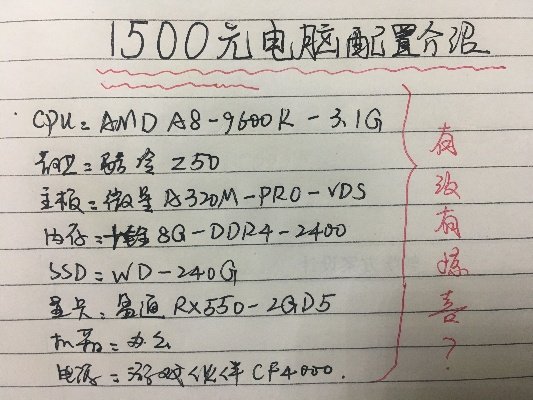 1500元电脑配置介绍
CPU=AMD A8-9600K-3.1G
散热=酷冷Z50
主板=微星A320M-PRO-VDS
内存=8G-DDR4-2400
SSD=WD-240G
显卡:盈通RX550-2GD5
机箱=办公
电源=游戏伙伴CF4000.
有没有惊喜?